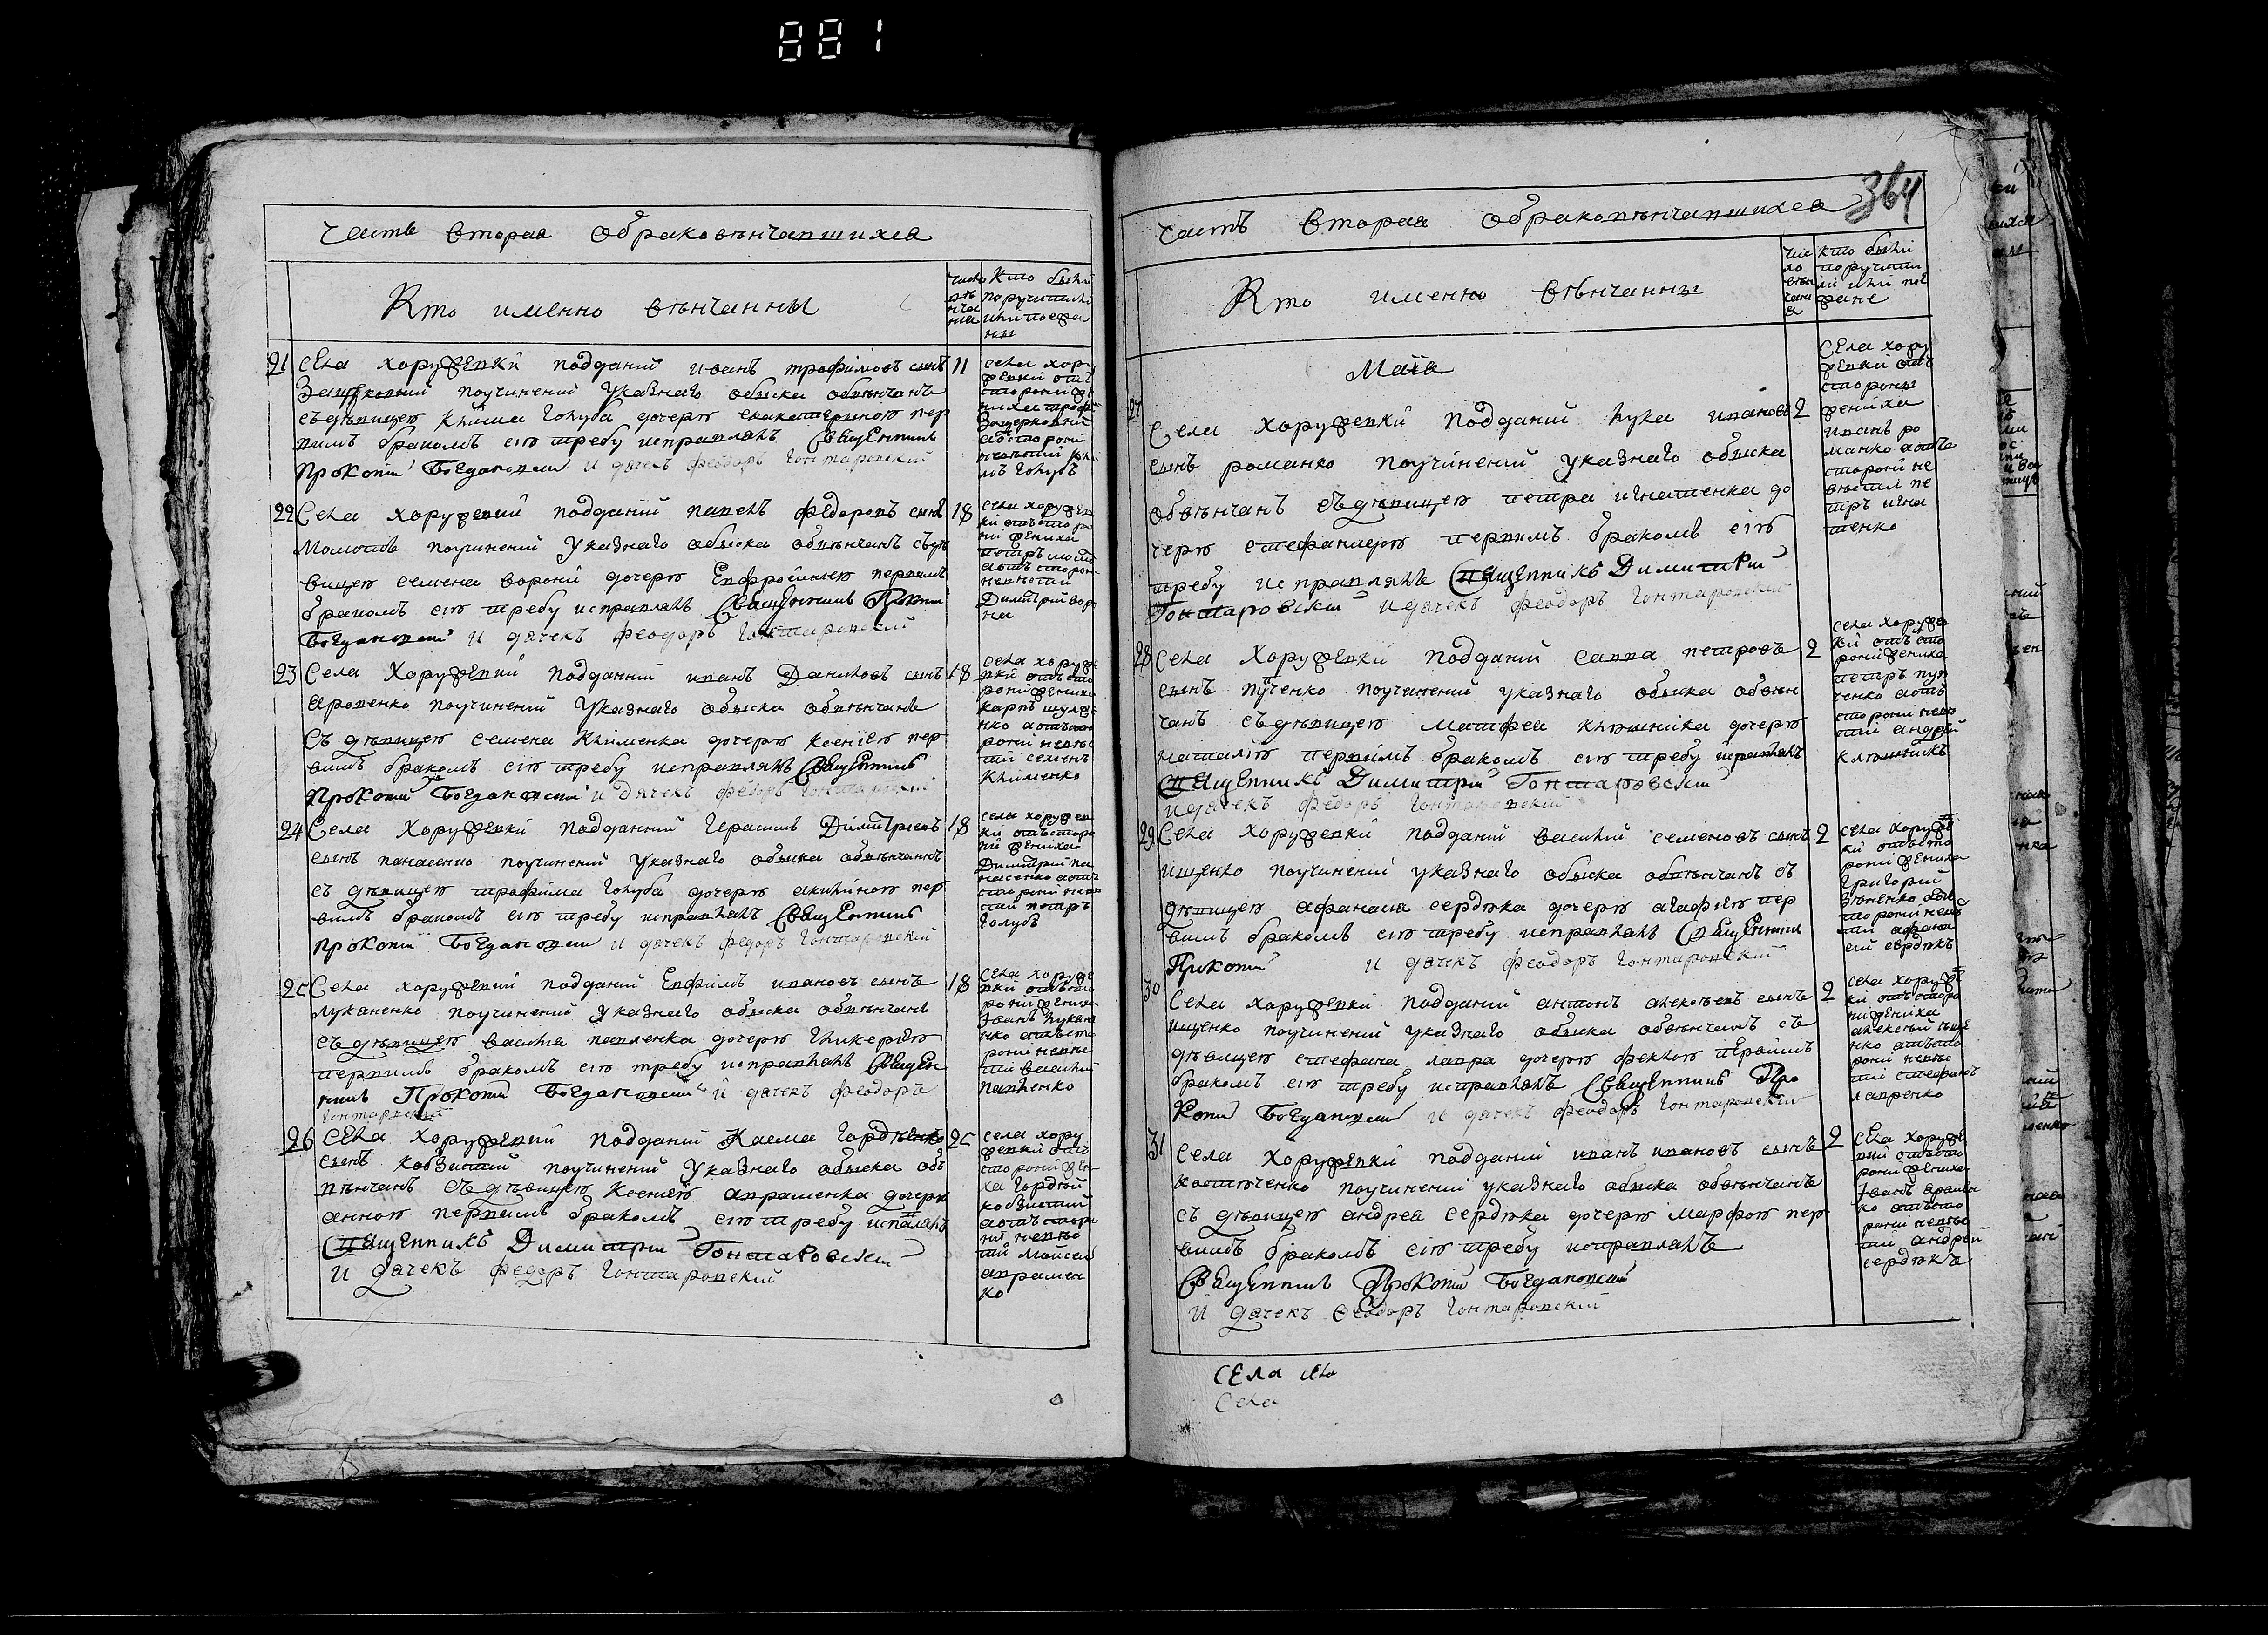 881
Часть вторая обраковѣнчавшихся
Кто именно вѣнчанны
число вѣнчания
Кто были поручители или поезжаны
21 Села Хоружевки подданий иванъ трофимовъ сынъ 11
поучинений указнаго обыска обвѣнчанъ
съ дѣвицею клима голуба дочерю екатериною пер
вимъ бракомъ сію требу исправлялъ Священникъ
Прокопій Богдановский и дячекъ феодоръ гонтаровский
села хору
жевки отъ
сторони же
ниха трофи
сторони
невѣстий кли
мъ голубъ
22 Села хоружевки подданий павелъ федоровъ синъ 18
поучинений указнаго обыска обвѣнчанъ съ дѣ
вицею семена ворони дочерю Евфросиниею первимъ
бракомъ сію требу исправлялъ Священникъ Прокопий
Богдановский и дячекъ феодоръ гонтаровский
села хоружев
ки отъ сторо
ни жениха
петръ
а отъ сторони
невѣстий
Димитрий воро
на
23 Села Хоружевки подданний иванъ Даниловъ синъ 18
яровенко поучинений указнаго обыска обвѣнчанъ
съ дѣвицею семена Клименка дочерю ксениею пер
вимъ бракомъ сію требу исправлялъ Священникъ
Прокопий Богдановский и дячекъ феодоръ гонтаровский
села хоруже
вки отъ сто
рони жениха
карпъ шуля
нко а отъ сто
рони невѣс
тий семенъ
Клименко
24 Села Хоружевки подданний герасимъ Димитриевъ 18
сынъ панасенко поучинений указнаго обыска обвѣнчанъ
съ дѣвицею трофима голуба дочерю акилиною пер
вимъ бракомъ сію требу исправлялъ Священникъ
прокопий Богдановский и дячекъ феодоръ гонтаровский
села хоружев
ки отъ сторо
ни жениха
Димитрий па
насенко а отъ
сторони невѣс
тий петръ
голубъ
25 Села хоружевки подданий Евфимъ ивановъ синъ 18
луканенко поучинений указнаго обыска обвѣнчанъ
съ дѣвицею василия павленка дочерю гликериею
первимъ бракомъ сію требу исправлялъ Священ
никъ Прокопий Богдановский и дячекъ феодоръ
гонтаровский
села хоруже
вки отъ сто
рони жениха
Іванъ лукане
нко а отъ сто
рони невѣс
тий василий
павленко
26 Села хоружевки подданий Касма гордѣенко 25
синъ кобзистий поучинений указнаго обыска об
вѣнчанъ съ дѣвицею ксениею авраменка дочерю
анною первимъ бракомъ сію требу исправлялъ
Священникъ Димитрий Гонтаровский
И дячекъ федоръ гонтаровский
села хору
жевки отъ
сторони жени
ха гордѣй
кобзистий
а отъ сторо
ни невѣс
тий мойсей
авраменко
364
часть вторая обраковѣнчавшихся
Кто именно вѣнчанны
число вѣнчания
кто были поручители или пое
жане
Маія
27
Села хоружевки подданий лука ивановъ 2
сынъ романко поучинений указнаго обыска
обвѣнчанъ съ дѣвицею петра игнатенка до
черю стефанидою первимъ бракомъ сію
требу исправлялъ Священникъ Димитрий
Гонтаровский и дячекъ феодоръ гонтаровский
села хору
жевки отъ
стороны
жениха
иванъ ро
манко а отъ
сторони не
вѣстий пе
тръ игна
тенко
28 Села Хоружевки подданий савва петровъ 2
сынъ поучинений указнаго обыска обвѣн
чанъ съ дѣвицею матфея ключника дочерю
наталією первимъ бракомъ сію требу исправлялъ
Священникъ Димитрий Гонтаровский
и дячекъ феодоръ гонтаровский
села хоружев
ки отъ сто
рони жениха
петръ
а отъ
сторони невѣс
тий андрей
ключникъ
29 Села хоружевки подданий василий семеновъ сынъ 2
ищенко поучинений указнаго обыска обвѣнчанъ съ
дѣвицею афанасия сердюка дочерю агафиею пер
вимъ бракомъ сію требу исправлялъ Священникъ
Прокопий и дячекъ феодоръ гонтаровский
села хоруже
вки отъ сто
рони жениха
григорий
а отъ
сторони невѣс
тий афана
сий сердюкъ
30
Села хоружевки подданий антонъ алексѣевъ сынъ 2
ищенко поучинений указнаго обыска обвѣнчанъ съ
дѣвицею стефана лавра дочерю феклою первимъ
бракомъ сію требу исправлялъ Священникъ Про
копий Богдановский и дячекъ феодоръ гонтаровский
села хоружев
ки отъ сторо
ни жениха
алексѣй ище
нко а отъ сто
рони невѣс
тий стефанъ
лавренко
31 Села Хоружевки подданий иванъ ивановъ сынъ 2
костюченко поучинений указнаго обыска обвѣнчанъ
съ дѣвицею андрея сердюка дочерю марфою пер
вимъ бракомъ сію требу исправлялъ
Священникъ Прокопий Богдановский
И дячекъ феодоръ гонтаровский
села хоруже
вки отъ сто
рони жениха
Іванъ
а отъ сто
рони невѣс
тий андрей
сердюкъ
села села
Села